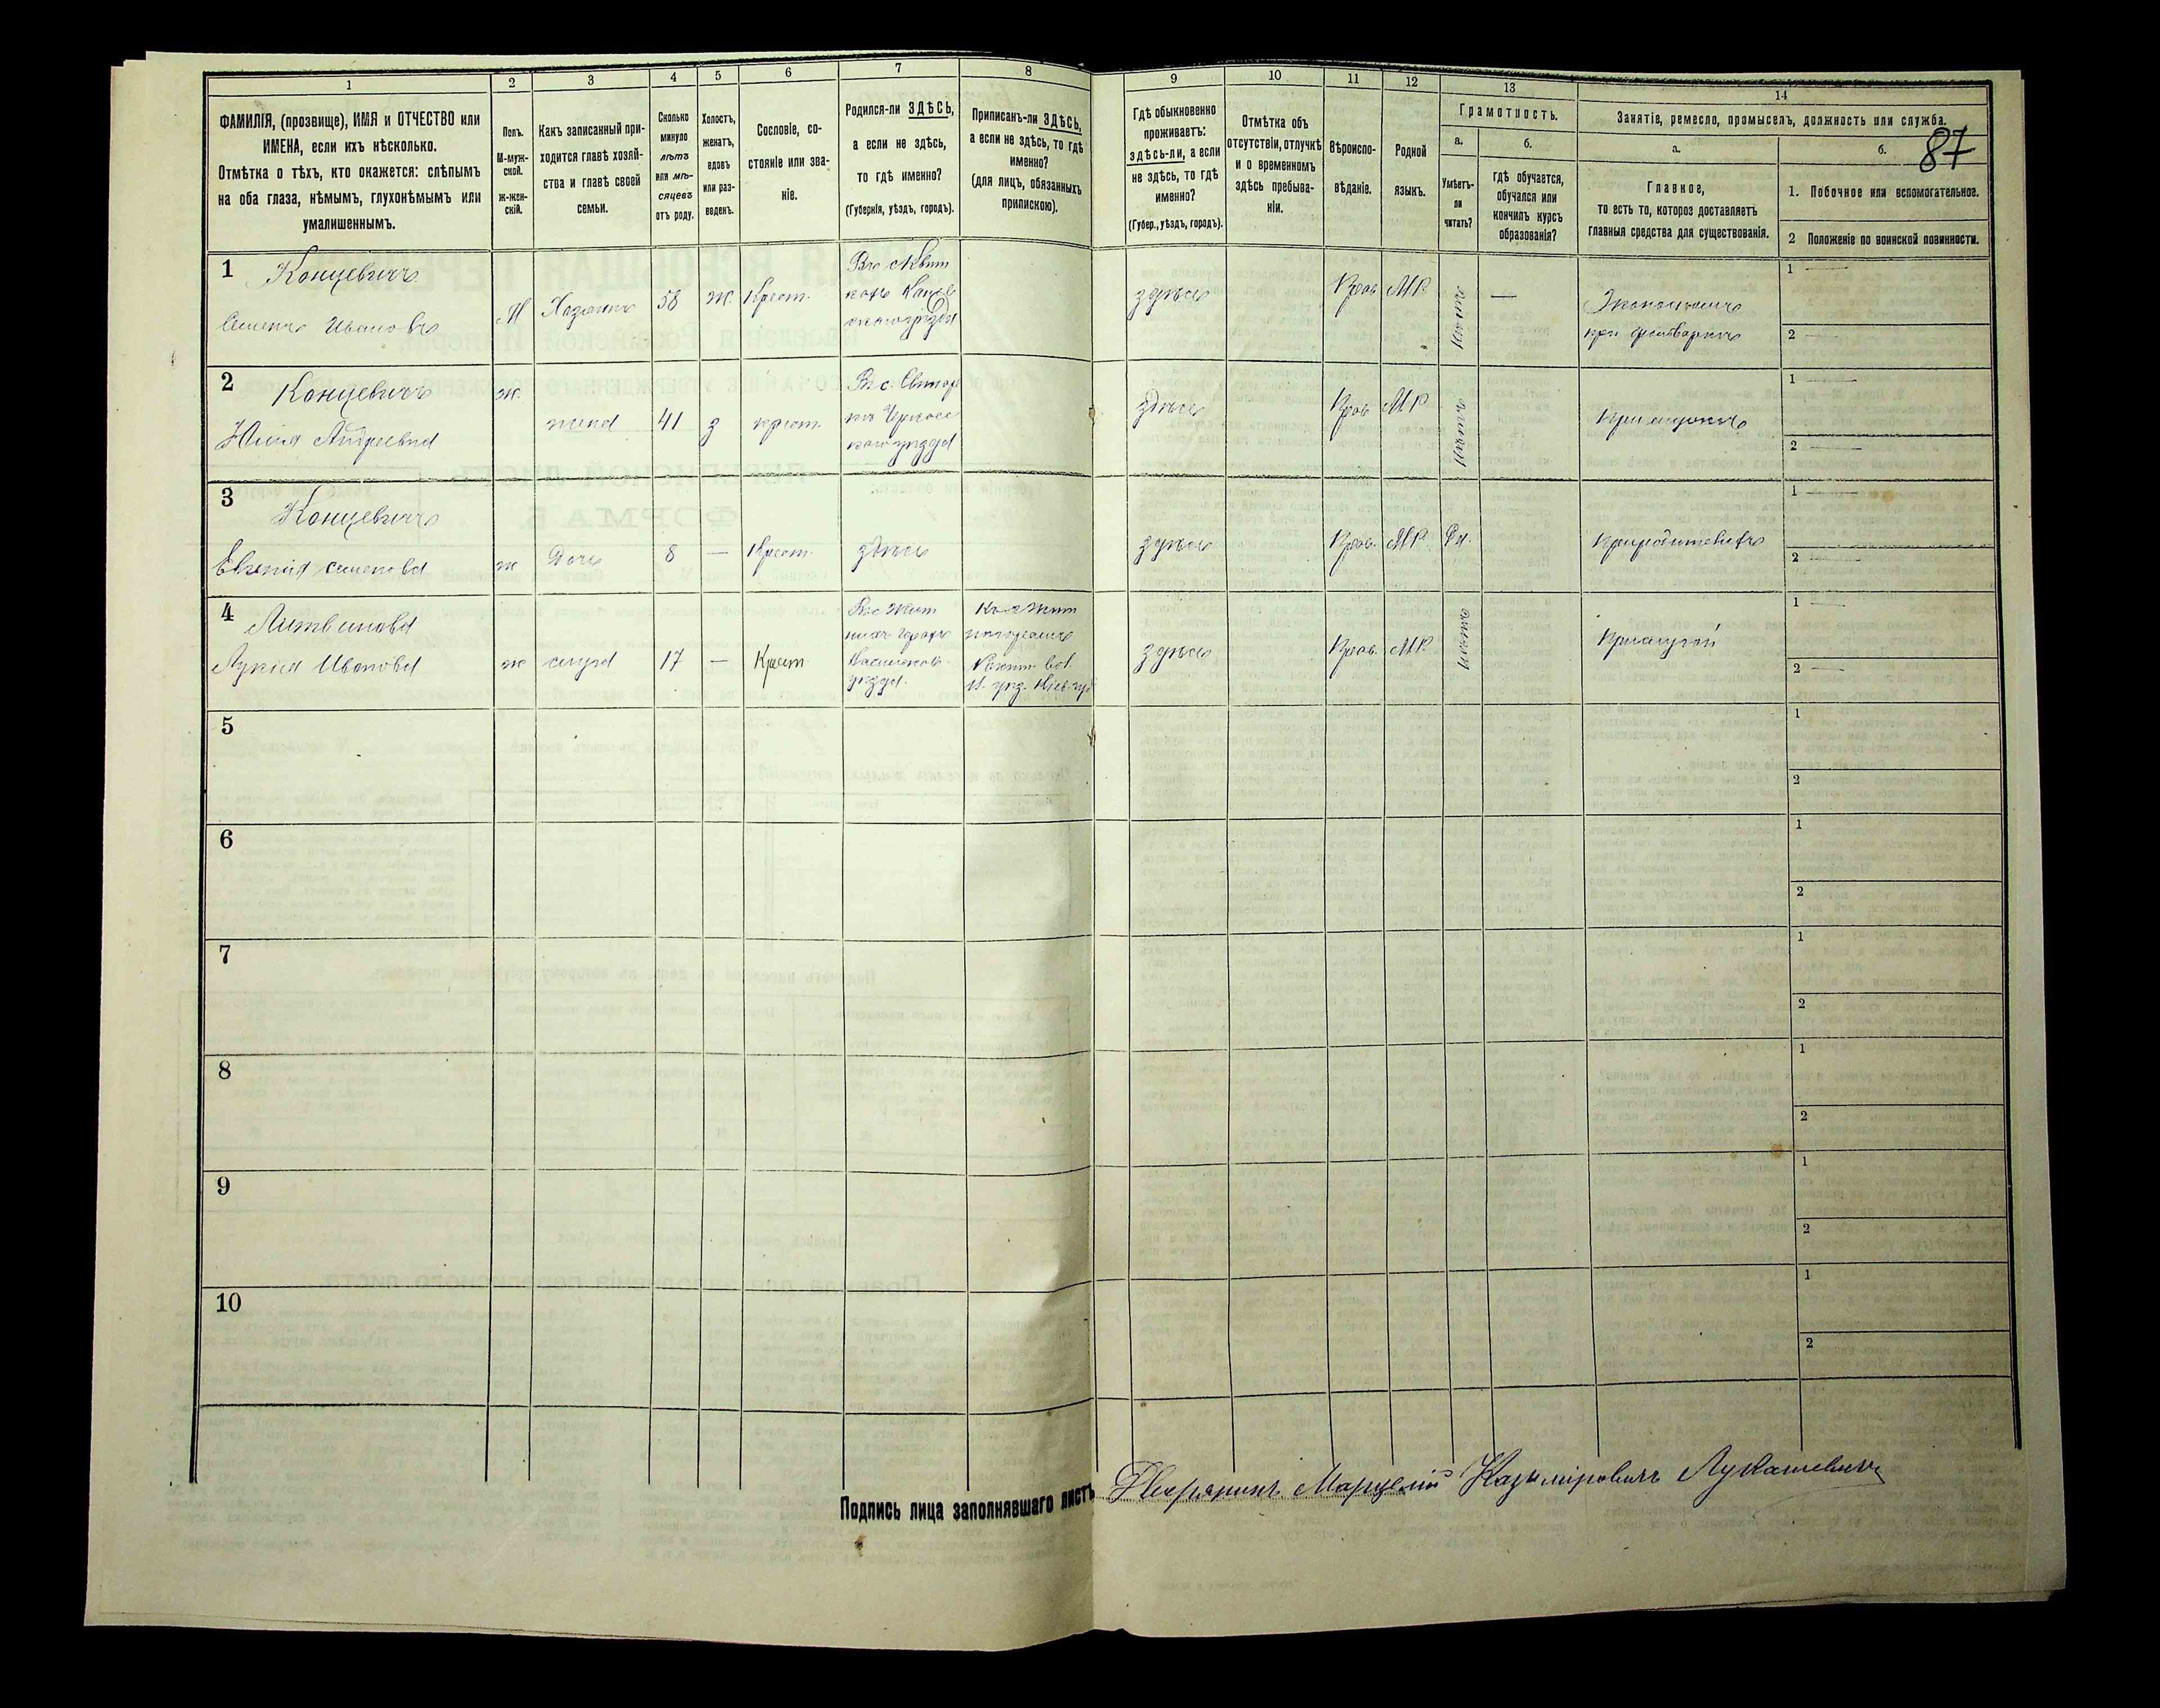 1
2
3
4
5
6
7
8
9
10
11
12
13
14
87
ФАМИЛІЯ, (прозвище), ИМЯ и ОТЧЕСТВО или
ИМЕНА, если ихъ нѣсколько.
Отмѣтка о тѣхъ, кто окажется: слѣпымъ
на оба глаза, нѣмымъ, глухонѣмымъ или
умалишеннымъ.
Полъ.
М-муж-
ской.
Ж-жен-
скій.
Какъ записанный при-
ходится главѣ хозяй-
ства и главѣ своей
семьи.
Сколько
минуло
лѣтъ
или мѣ-
сяцевъ
отъ роду.
Холостъ,
женатъ,
вдовъ
или раз-
веденъ.
Сословіе, со-
стояніе или зва-
ніе.
Родился-ли ЗДѢСЬ,
а если не здѣсь,
то гдѣ именно?
(Губернія, уѣздъ, городъ).
Приписанъ-ли ЗДѢСЬ,
а если не здѣсь, то гдѣ
именно?
(для лицъ, обязанныхъ
припискою).
Гдѣ обыкновенно
проживаетъ:
здѣсь-ли, а если
не здѣсь, то гдѣ
именно?
(Губер., уѣздъ, городъ).
Отмѣтка объ
отсутствіи, отлучкѣ
и о временномъ
здѣсь пребыва-
ніи.
Вѣроиспо-
вѣданіе.
Родной
языкъ.
Грамотность.
а.
Умѣетъ-
ли
читать?
б.
гдѣ обучается,
обучался или
кончилъ курсъ
образованія?
Занятіе, ремесло, промыселъ, должность или служба.
а.
Главное,
то есть то, которое доставляетъ
главныя средства для существованія.
б.
1. Побочное или вспомогательное.
2 Положеніе по воинской повинности.
1 Концевичъ
Семенъ Ивановъ
М
Хозяинъ
58
ж.
Крест.
здѣсь
Прав.
МР.
нѣтъ
—
при фольваркѣ
1 —
2 —
2 Концевичъ
Юлія Андреевна
ж.
жена
41
з
крест.
здѣсь
Прав.
МР.
нѣтъ
при мужѣ
1 —
2 —
3 Концевичъ
Евгенія Семенова
ж
Дочь
8
—
Крест.
здѣсь
здѣсь
Прав.
МР.
Да.
1 —
2 —
4 Литвинова
Лукія Иванова
ж
слуга
17
—
Крест
уѣзда.
здѣсь
Прав.
МР
нѣтъ
прислугой
1 —
2 —
5
1
2
6
1
2
7
1
2
8
1
2
9
1
2
10
1
2
Подпись лица заполнявшаго листъ Дворянинъ Марцелій Казиміровичъ Лукашевичъ